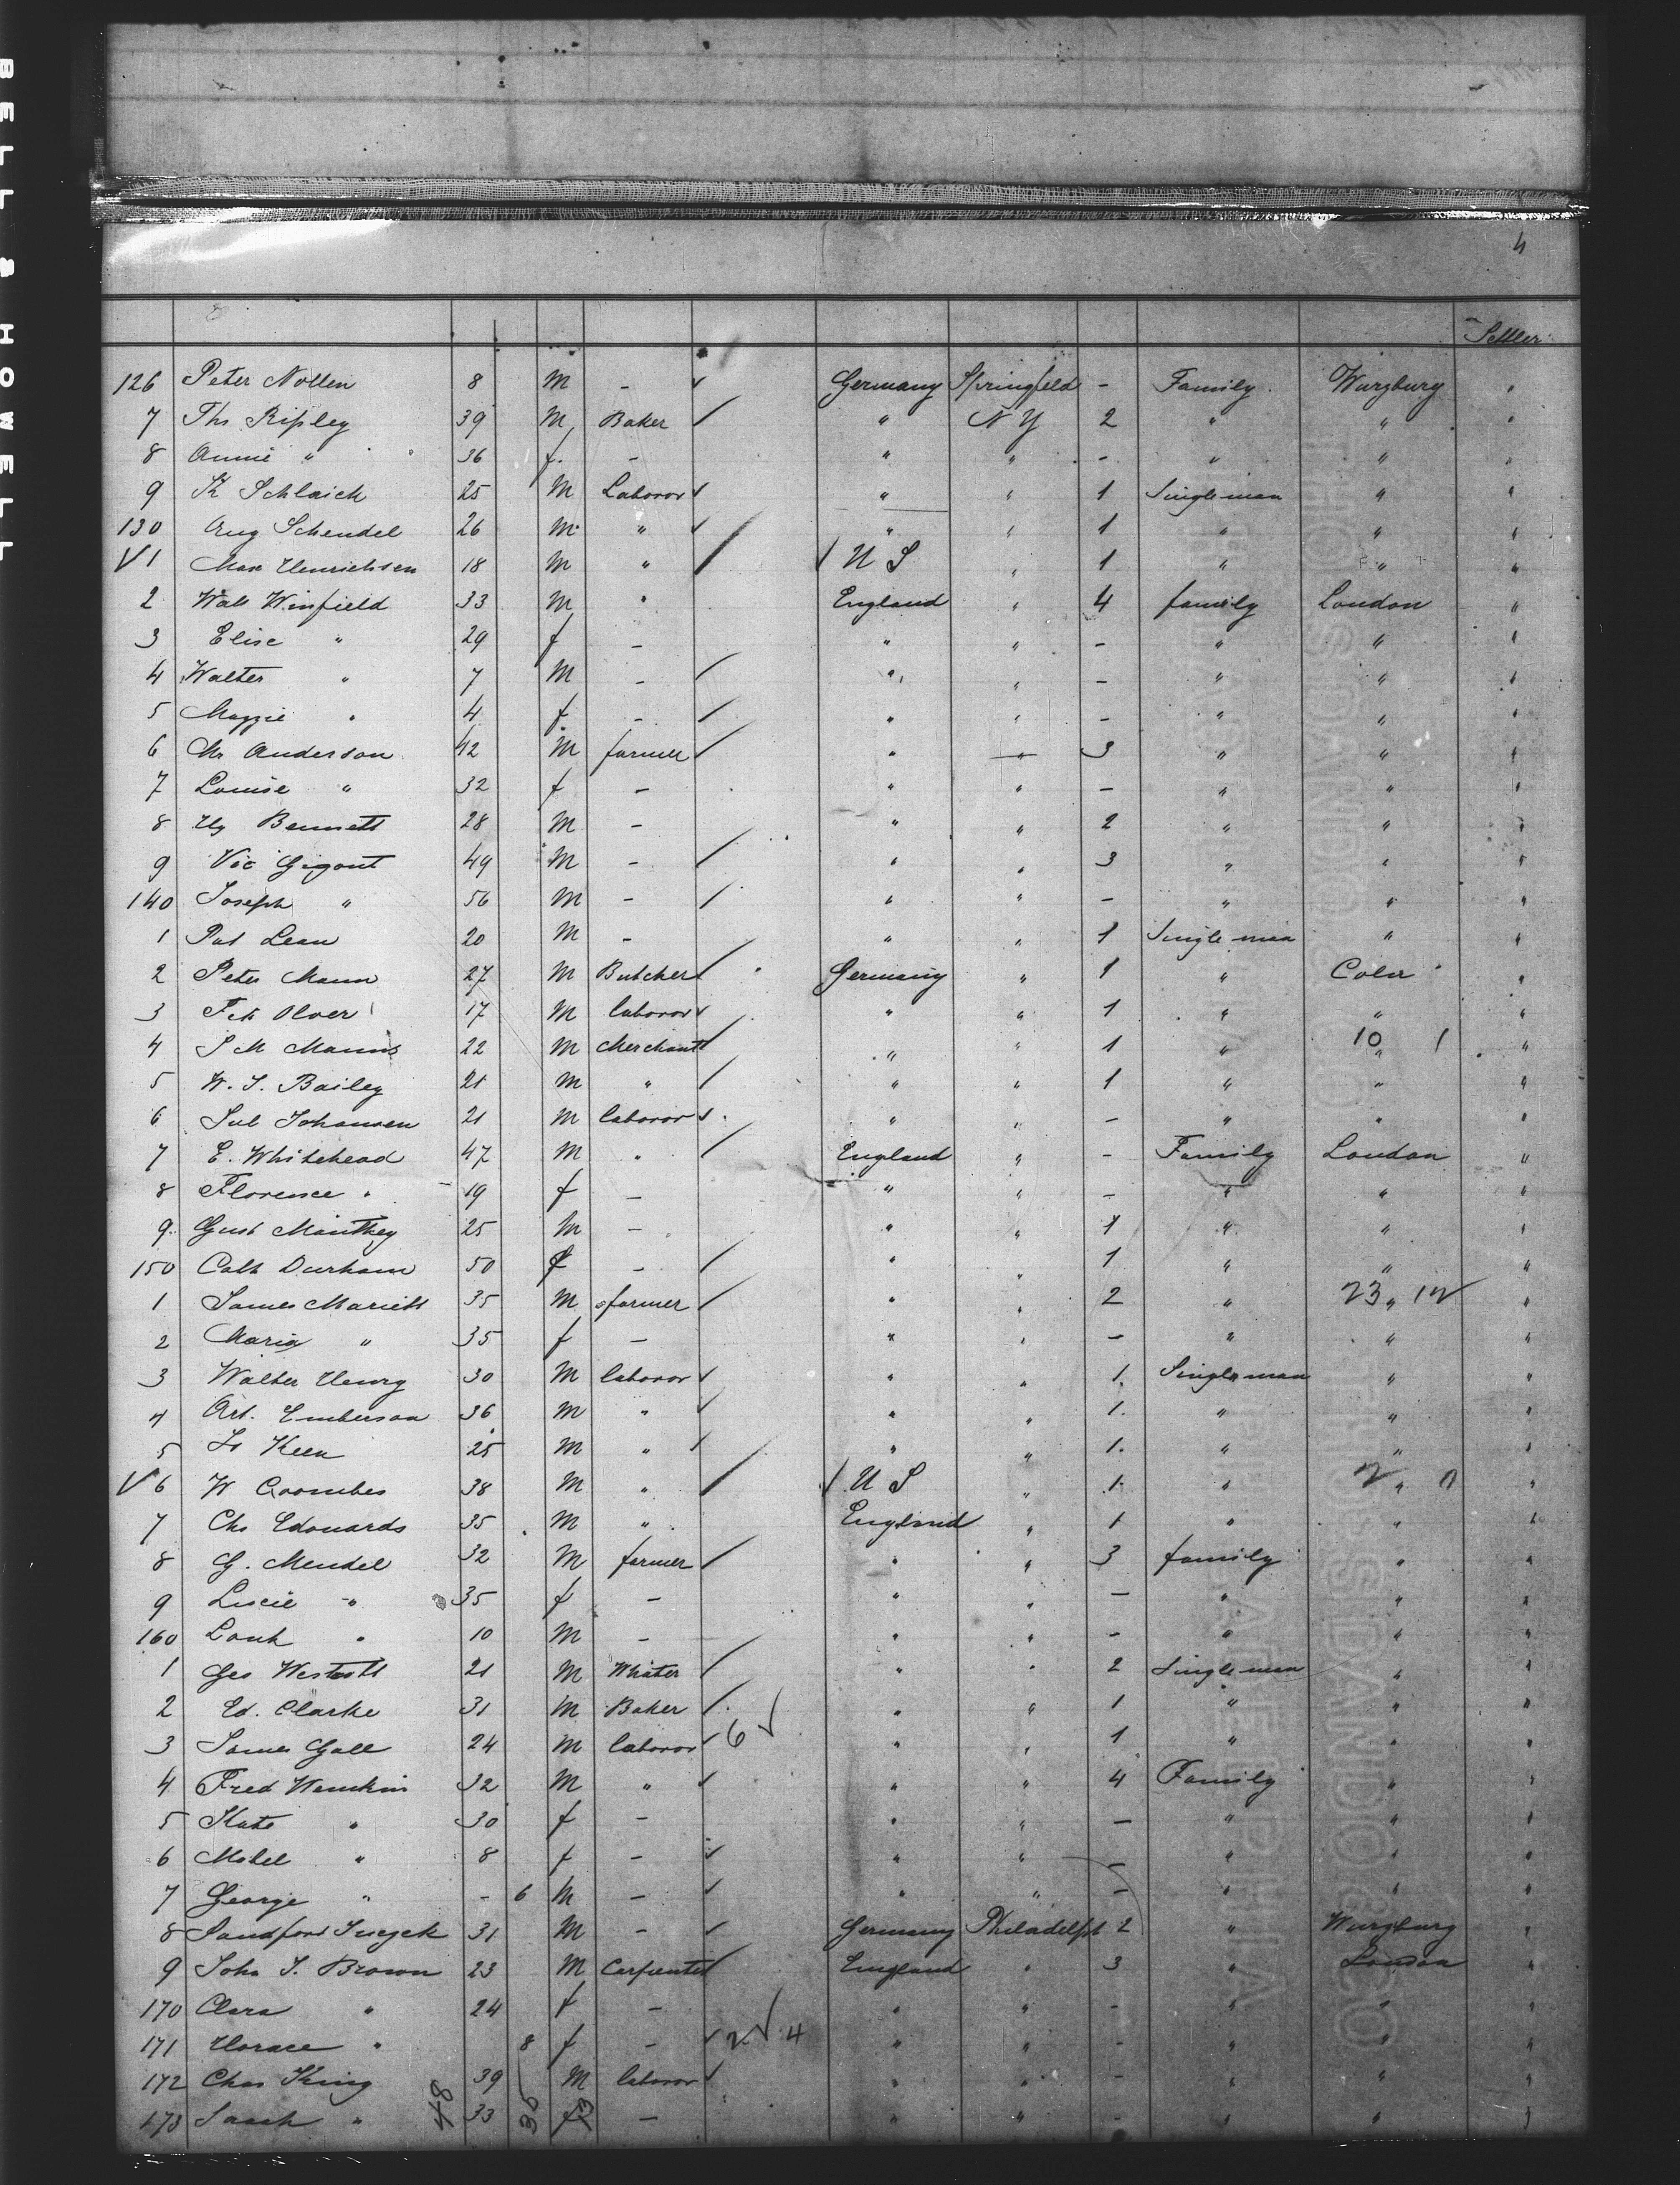 BELL & HOWELL
4
Settler
126 Peter Nollen 8 M - Germany Springfield - Family Wurzburg "
7 Ths Ripley 39 M Baker " N Y 2 " " "
8 Annie " 36 f. - " " - " " "
9 Schlaich 25 M Laboror " " 1 Single man " "
130 Aug Schendel 26 M " " " 1 " " "
√ 1 Max Henrichsen 18 M " √ U S " 1 " " "
2 Walt Winfield 33 M " England " 4 family London "
3 Elise " 29 f - " " - " " "
4 Walter " 7 M - " " - " " "
5 Maggie " 4 f. - " " - " " "
6 Mr Anderson 42 M farmer " " 3 " " "
7 Louise " 32 f - " " - " " "
8 Hy Bennett 28 M - " " 2 " " "
9 Vic Gigout 49 M - " " 3 " " "
140 Joseph " 56 M - " " - " " "
1 Pat Lean 20 M - " " 1 Single man " "
2 Peter Mann 27 M Butcher Germany " 1 " Coln "
3 Olver 17 M laboror " " 1 " " "
4 S M Manns 22 M Merchant " " 1 " 10 " 1 "
5 W. S. Bailey 21 M " " " 1 " " "
6 Jul Johansen 21 M laboror " " - " " "
7 E. Whitehead 47 M " England " - Family London "
8 Florence " 19 f - " " - " " "
9 Gust Manthey 25 M - " " 1 " " "
150 Cath Durham 50 f - " " 1 " " "
1 James Mariett 35 M farmer " " 2 " 23 " 12 "
2 Maria " 35 f - " " - " " "
3 Walter Henry 30 M laboror " " 1. Single man " "
4 Art. Emberson 36 M " " " 1. " " "
5 Keen 25 M " " " 1. " " "
√ 6 W Coombes 38 M " √ U S " 1. " 2 " 0 "
7 Chs Edouards 35 M " England " 1 " " "
8 G. Mendel 32 M farmer " " 3 family " "
9 Liscie " 35 f - " " - " " "
160 " 10 M - " " - " " "
1 Geo Westcott 21 M Whiter " " 2 Single man " "
2 Ed. Clarke 31 M Baker " " 1 " " "
3 James Gall 24 M laboror 6 √ " " 1 " " "
4 Fred Wemkin 32 M " " " 4 Family " "
5 Kate " 30 f - " " - " " "
6 Mabel " 8 f - " " - " " "
7 George " - 6 M - " " - " " "
8 Sandford 31 M - Germany Philadelph 2 " Wurzburg "
9 John S. Brown 23 M Carpenter England " 3 " London "
170 Clara " 24 f - " " - " " "
171 Horace " 8 f - 2 √ 4 " " - " " "
172 Chas King 39 M laboror " " - " " "
173 Sarah " 33 f - " " - " " "
48 35 13